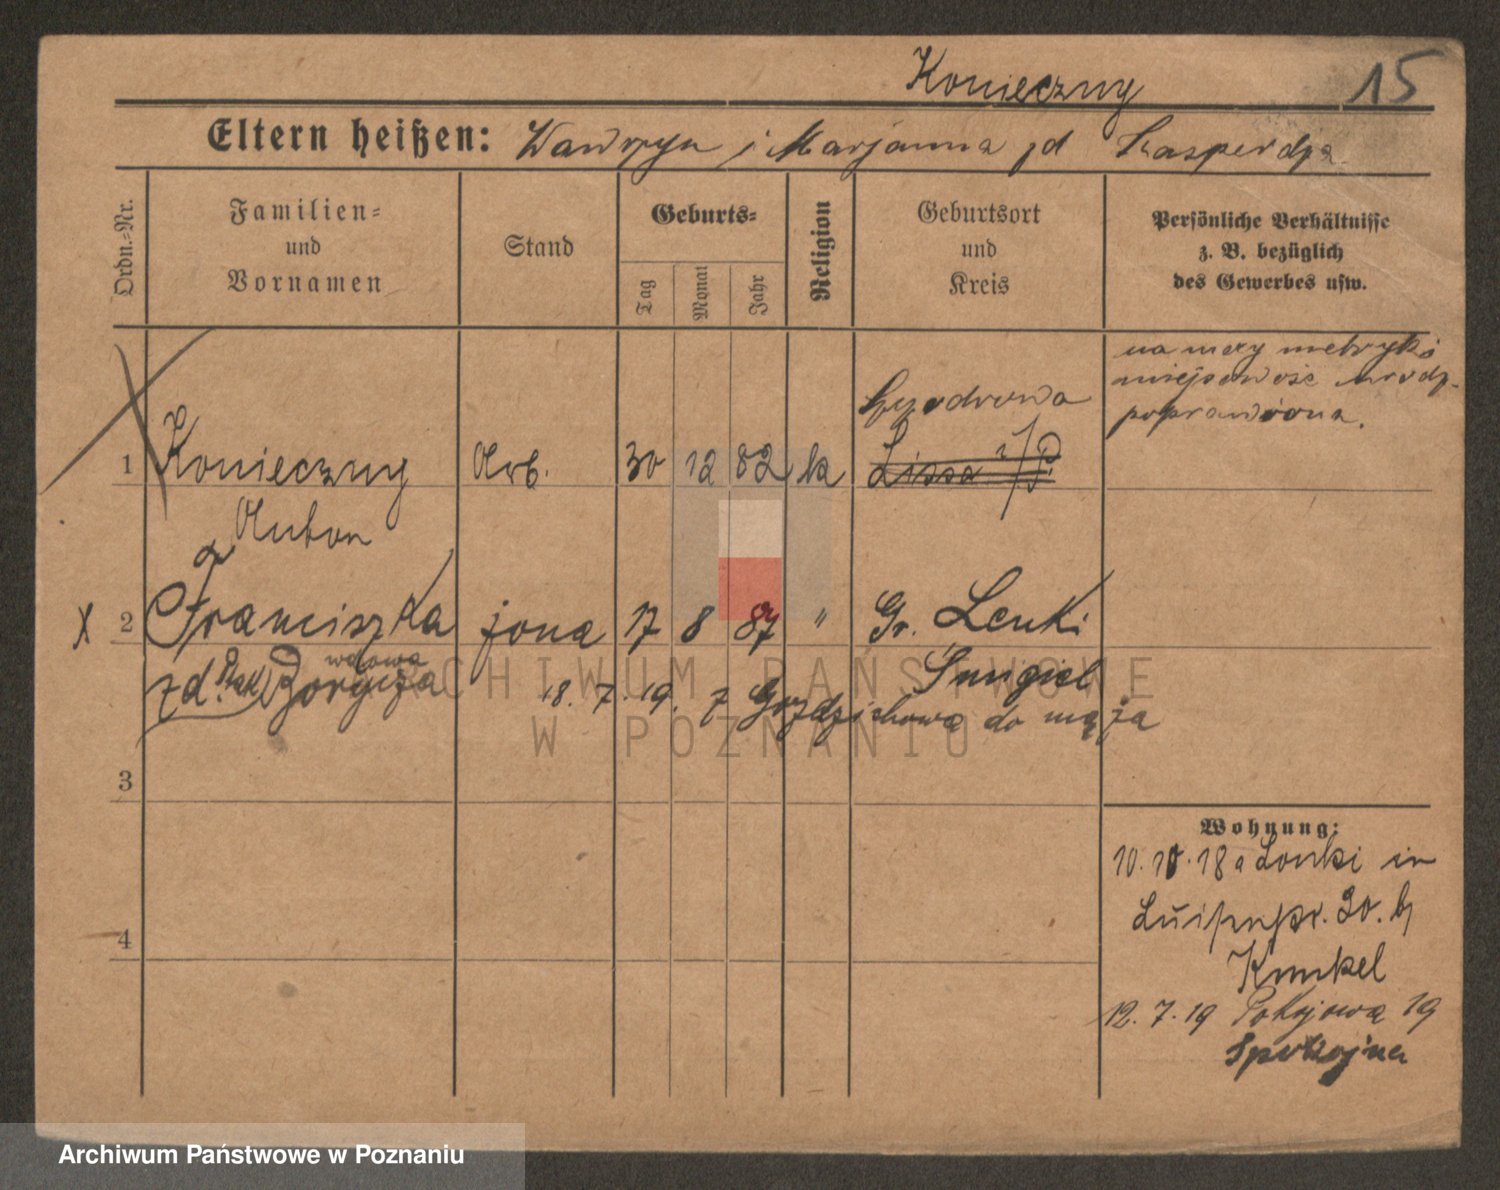 Konieczny 15
Eltern heißen: Wawrzyn i Marjanna zd Kasperdza
Ordn.-Nr.
Familien=
und
Vornamen
Stand
Geburts=
Tag
Monat
Jahr
Religion
Geburtsort
und
Kreis
Persönliche Verhältnisse
z. B. bezüglich
des Gewerbes usw.
na mocy metryki
miejscowość urodz.
poprawiona.
1 Konieczny Arb. 30 12 82 k Lissa i/P.
Anton
X 2 Franciszka żona 17 8 87 " Gr. Lenki
zd. Ptak wdowa
Śmigiel
18. 7. 19. z do męża
3
4
Wohnung:
10. 10. 18 a Lenki in
Luisenstr. 30. b/
Kunkel
12. 7. 19 Pokojowa 19
Spokojna
ARCHIWUM PAŃSTWOWE
W POZNANIU
Archiwum Państwowe w Poznaniu